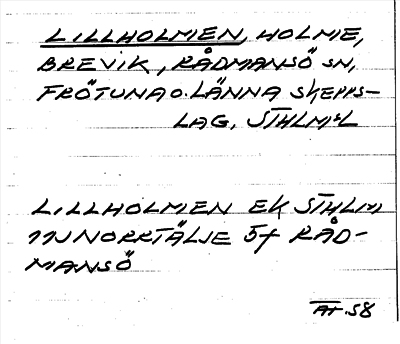 LILLHOLMEN, HOLME,
BREVIK, RÅDMANSÖ SN,
FRÖTUNA O. LÄNNA SKEPPS-
LAG, STHLM:L
LILLHOLMEN EK STHLM
11J NORRTÄLJE 5f RÅD-
MANSÖ
AH.58